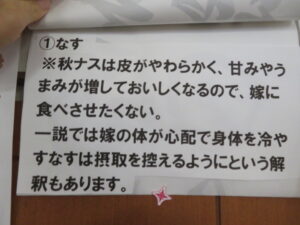 ①なす
※秋ナスは皮がやわらかく、甘みやう
まみが増しておいしくなるので、嫁に
食べさせたくない。
一説では嫁の体が心配で身体を冷や
すなすは摂取を控えるようにという解
釈もあります。